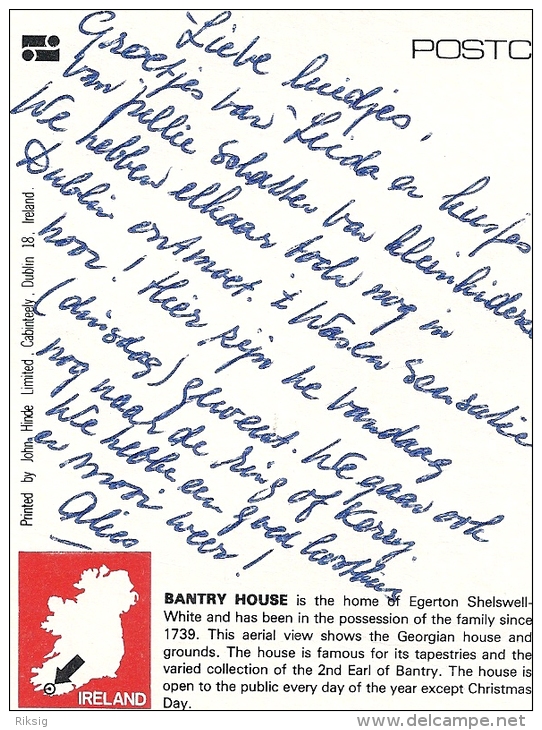 POSTC
Liebe luidjes,
Groetjes van Leida en kusjes
van jullie schatten van kleinkinderen
We hebben elkaar toch nog in
Dublin ontmoet. 't Waren sensatie
hoor! Hier zijn we vandaag
(dinsdag) geweest. We gaan ook
nog naar de Ring of Kerry.
We hebben een goed
en mooi weer!
Alies
Printed by John Hinde Limited, Cabinteely, Dublin 18, Ireland.
IRELAND
BANTRY HOUSE is the home of Egerton Shelswell-
White and has been in the possession of the family since
1739. This aerial view shows the Georgian house and
grounds. The house is famous for its tapestries and the
varied collection of the 2nd Earl of Bantry. The house is
open to the public every day of the year except Christmas
Day.
Riksig
delcampe.net